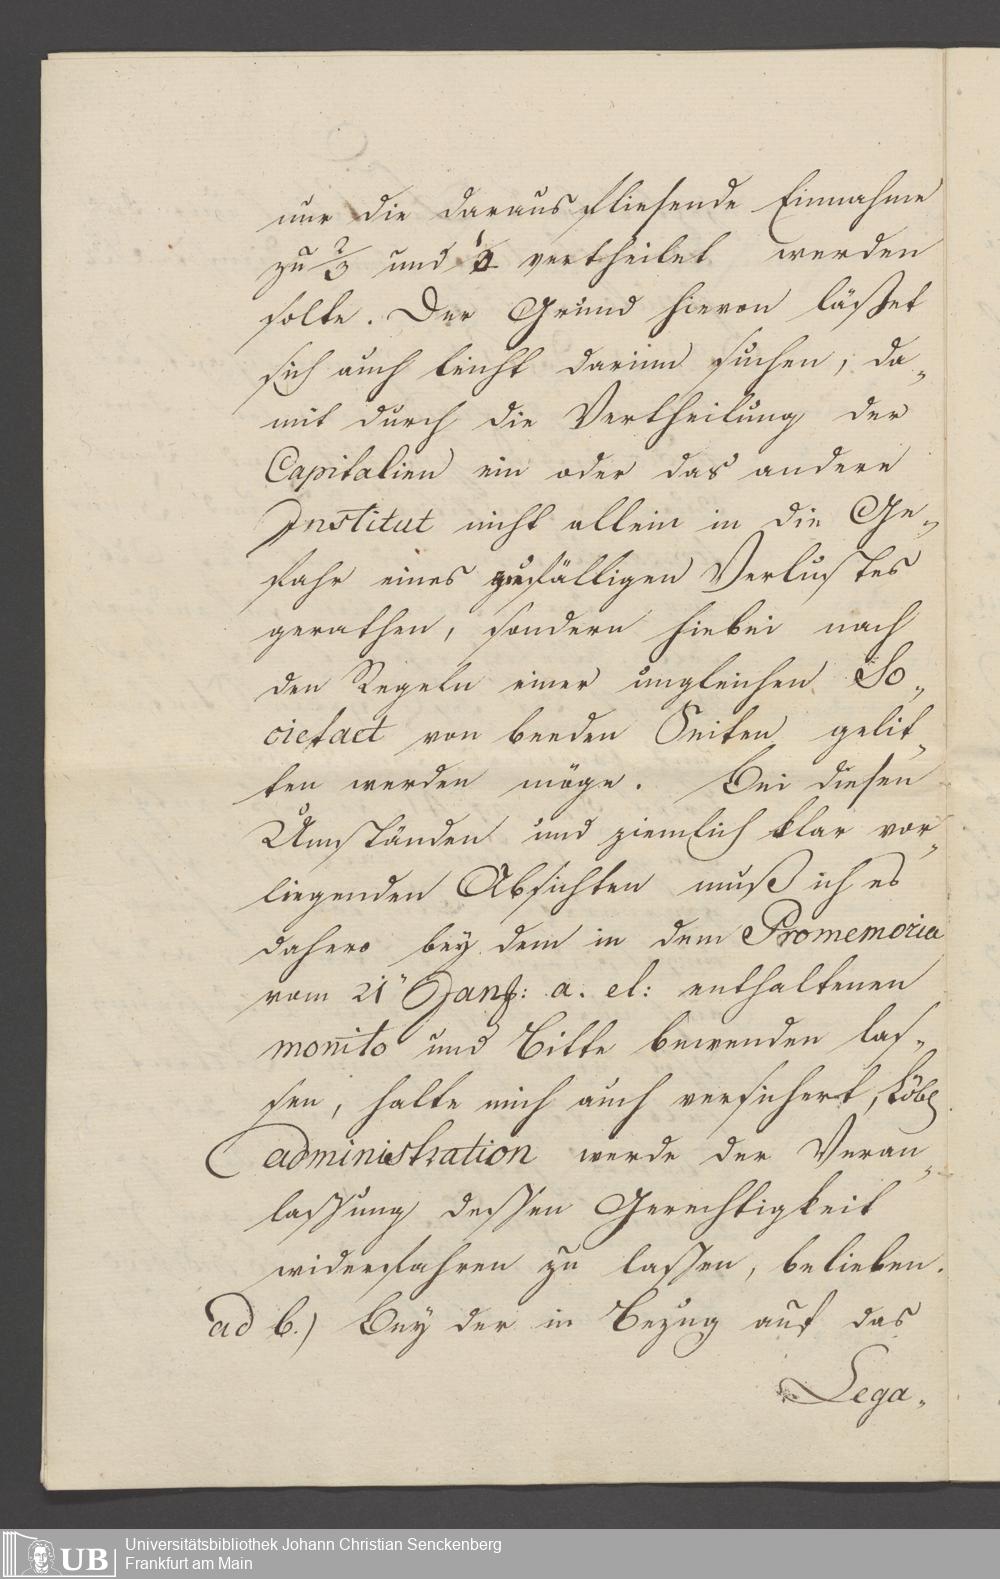 nur die daraus fliesende Einnahme
zu 2/3 und 1/3 vertheilet werden
solte. Der Grund hievon läßet
sich auch leicht darinn suchen, da„
mit durch die Vertheilung der
Capitalien ein oder das andere
Institut nicht allein in die Ge„
fahr eines zufälligen Verlustes
gerathen, sondern hiebei nach
den Regeln einer ungleichen So„
cietaet von beeden Seiten gelit„
ten werden möge. Bei diesen
Umständen und ziemlich klar vor„
liegenden Absichten muß ich es
dahero bey dem in dem Promemoria
vom 21" Jan: a. el: enthaltenen
monito und Bitte bewenden las„
sen, halte mich auch versichert, Löbl
administration werde der Veran„
lassung dessen Gerechtigkeit
widerfahren zu lassen, belieben.
ad b.) Bey der in Bezug auf das
Lega„
Universitätsbibliothek Johann Christian Senckenberg
Frankfurt am Main
UB